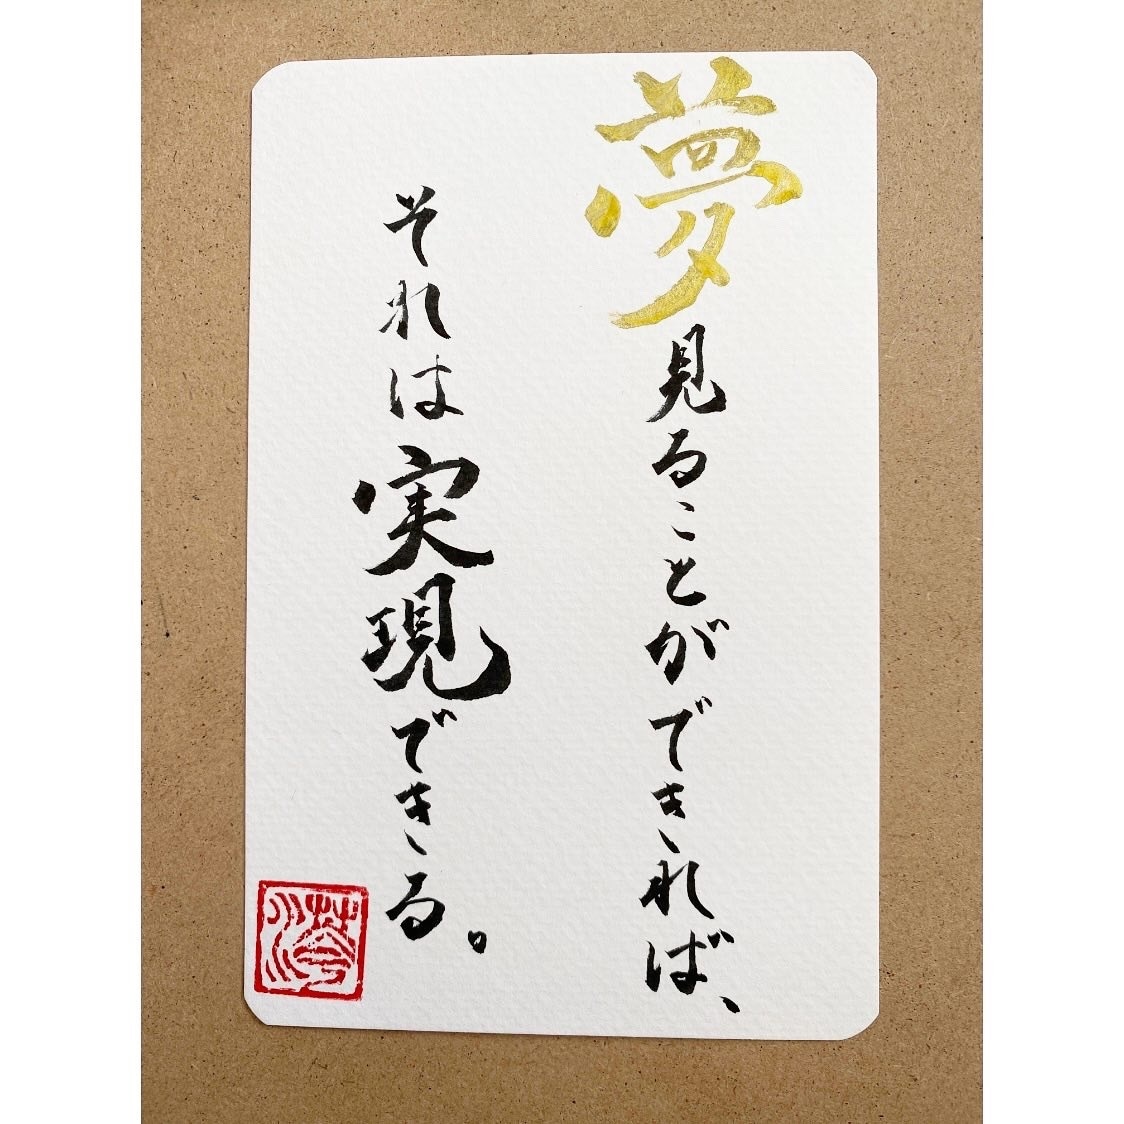 夢見ることができれば、
それは実現できる。